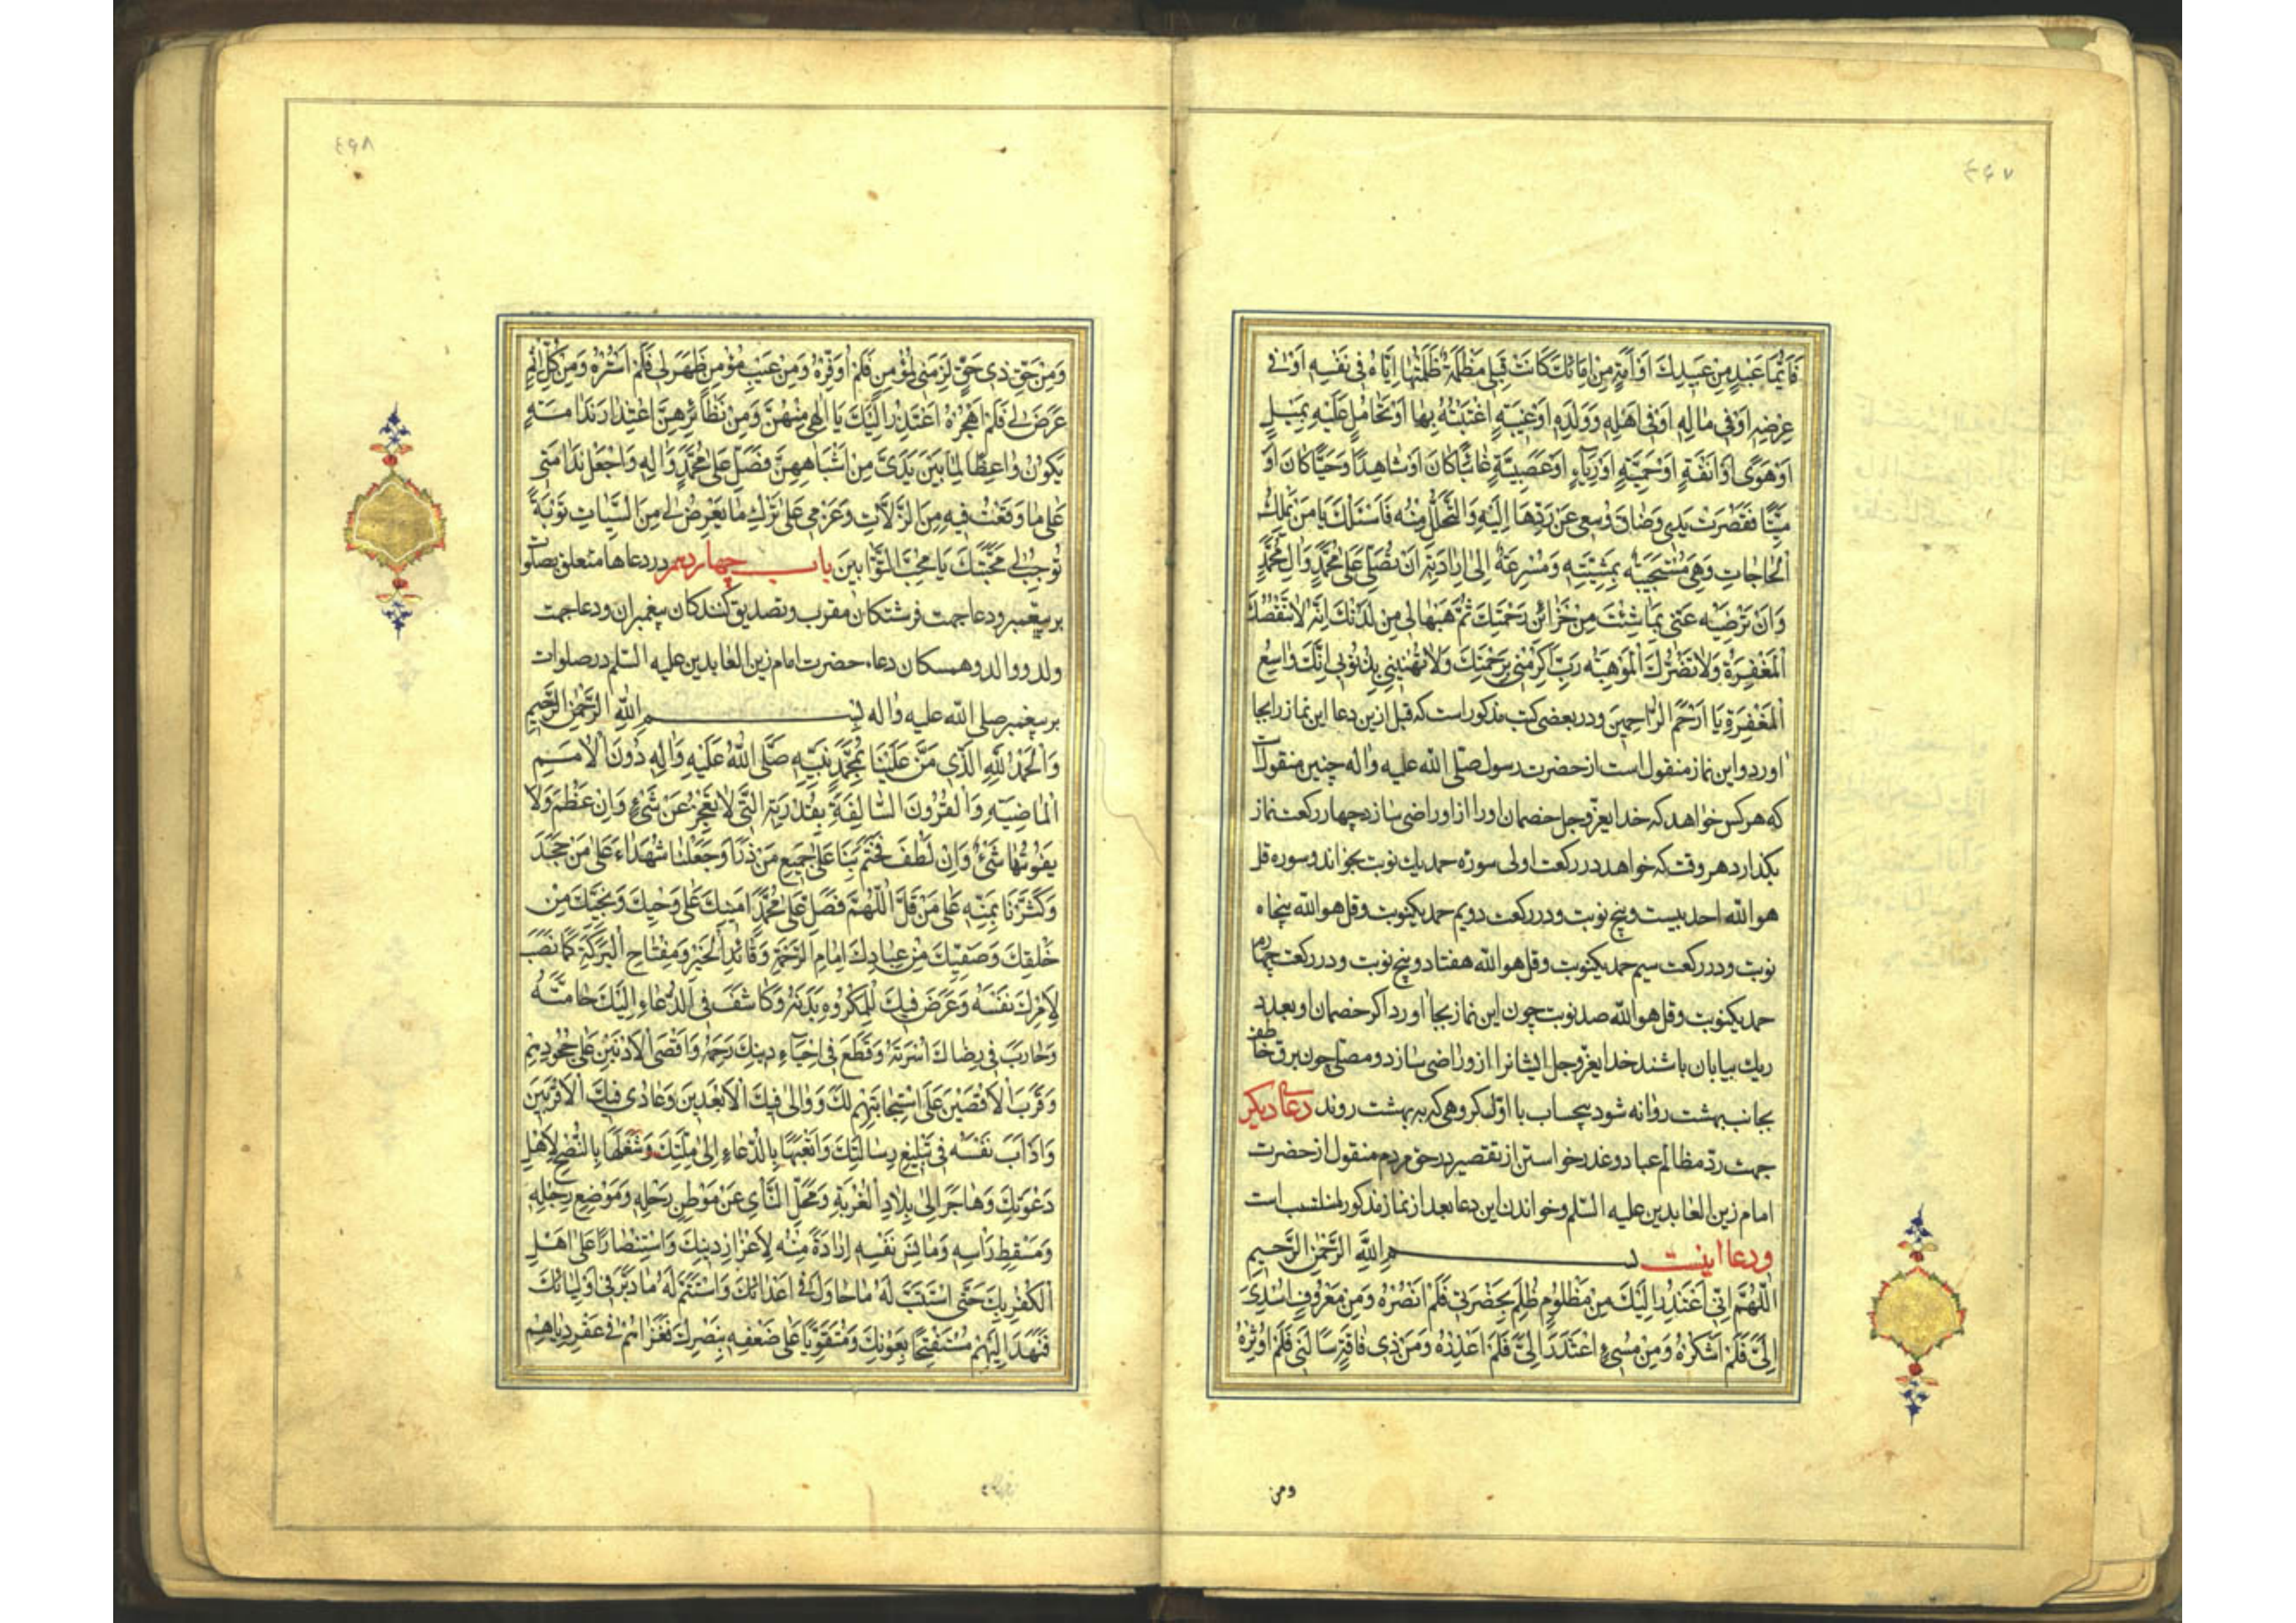 ۴۶۷
فَاَیُّمَا عَبْدٍ مِنْ عَبیدِكَ اَوْ اَمَةٍ مِنْ اِمَائِكَ كَانَتْ قِبَلِی مَظْلَمَةٌ ظَلَمْتُهَا اِیَّاهُ فِی نَفْسِهِ اَوْ فِی
عِرْضِهِ اَوْ فِی مَالِهِ اَوْ فِی اَهْلِهِ وَوَلَدِهِ اَوْ غِیْبَةٍ اغْتَبْتُهُ بِهَا اَوْ تَحَامُلٍ عَلَیْهِ بِمَیْلٍ
اَوْ هَوًى اَوْ اَنَفَةٍ اَوْ حَمِیَّةٍ اَوْ رِیَآءٍ اَوْ عَصَبِیَّةٍ غَائِبًا كَانَ اَوْ شَاهِدًا وَحَیًّا كَانَ اَوْ
مَیِّتًا فَقَصُرَتْ یَدِی وَضَاقَ وُسْعِی عَنْ رَدِّهَا اِلَیْهِ وَالتَّحَلُّلِ مِنْهُ فَاَسْئَلُكَ یَا مَنْ یَمْلِكُ
الْحَاجَاتِ وَهِیَ مُسْتَجِیبَةٌ بِمَشِیَّتِهِ وَمُسْرِعَةٌ اِلٰی اِرَادَتِهِ اَنْ تُصَلِّیَ عَلٰی مُحَمَّدٍ وَاٰلِ مُحَمَّدٍ
وَاَنْ تُرْضِیَهُ عَنِّی بِمَا شِئْتَ مِنْ خَزَائِنِ رَحْمَتِكَ ثُمَّ هَبْهَا لِی مِنْ لَدُنْكَ اِنَّهُ لَا تَنْقُصُكَ
الْمَغْفِرَةُ وَلَا تَضُرُّكَ الْمَوْهِبَةُ رَبِّ اَكْرِمْنِی بِرَحْمَتِكَ وَلَا تُهِنِّی بِذُنُوبِی اِنَّكَ وَاسِعُ
الْمَغْفِرَةِ یَا اَرْحَمَ الرَّاحِمِینَ ودر بعضی كتب مذكور است كه قبل ازین دعا این نماز را بجا
اورد و این نماز منقول است از حضرت رسول صلّی الله علیه واله چنین منقول است
كه هركس خواهد كه خدایعزّوجل خصمان اورا از او راضی سازد چهار ركعت نماز
بكذارد هر وقت كه خواهد در ركعت اولی سوره حمد یك نوبت بخواند و سوره قل
هو الله احد بیست وپنج نوبت و در ركعت دویم حمد یكنوبت وقل هو الله پنجاه
نوبت و در ركعت سیم حمد یكنوبت وقل هو الله هفتاد و پنج نوبت و در ركعت چهارم
حمد یكنوبت وقل هو الله صد نوبت چون این نماز بجا اورد اكر خصمان او بعدد
ریك بیابان باشند خدایعزّوجل ایشانرا ازو راضی سازد و مصلّی چون برق خاطف
بجانب بهشت روانه شود بیحساب با اوّل كروهی كه به بهشت روند دعای دیكر
جهت ردّ مظالم عباد و عذر خواستن از تقصیر در حق مردم منقول از حضرت
امام زین العابدین علیه السّلم و خواندن این دعا بعد از نماز مذكور انسب است
ودعا اینست بسم اللهِ الرَّحْمٰنِ الرَّحیمِ
اَللّٰهُمَّ اِنِّی اَعْتَذِرُ اِلَیْكَ مِنْ مَظْلُومٍ ظُلِمَ بِحَضْرَتِی فَلَمْ اَنْصُرْهُ وَمِنْ مَعْرُوفٍ اُسْدِیَ
اِلَیَّ فَلَمْ اَشْكُرْهُ وَمِنْ مُسِیءٍ اعْتَذَرَ اِلَیَّ فَلَمْ اَعْذِرْهُ وَمِنْ ذِی فَاقَةٍ سَاَلَنِی فَلَمْ اُوثِرْهُ
ومن
۴۶۸
وَمِنْ حَقِّ ذِی حَقٍّ لَزِمَنِی لِمُؤْمِنٍ فَلَمْ اُوَفِّرْهُ وَمِنْ عَیْبِ مُؤْمِنٍ ظَهَرَ لِی فَلَمْ اَسْتُرْهُ وَمِنْ كُلِّ اِثْمٍ
عَرَضَ لِی فَلَمْ اَهْجُرْهُ اَعْتَذِرُ اِلَیْكَ یَا اِلٰهِی مِنْهُنَّ وَمِنْ نَظَائِرِهِنَّ اعْتِذَارَ نَدَامَةٍ
یَكُونُ وَاعِظًا لِمَا بَیْنَ یَدَیَّ مِنْ اَشْبَاهِهِنَّ فَصَلِّ عَلٰی مُحَمَّدٍ وَاٰلِهِ وَاجْعَلْ نَدَامَتِی
عَلٰی مَا وَقَعْتُ فِیهِ مِنَ الزَّلَّاتِ وَعَزْمِی عَلٰی تَرْكِ مَا یَعْرِضُ لِی مِنَ السَّیِّاٰتِ تَوْبَةً
تُوجِبُ لِی مَحَبَّتَكَ یَا مُحِبَّ التَّوَّابِینَ باب چهاردهم در دعاها متعلق بصلوات
بر پیغمبر و دعا جهت فرشتكان مقرب و تصدیق كنندكان پیغمبران و دعا جهت
ولد و والد و همسكان دعاء حضرت امام زین العابدین علیه السّلم در صلوات
بر پیغمبر صلی الله علیه واله بسم اللهِ الرَّحْمٰنِ الرَّحیمِ
وَالْحَمْدُ لِلّٰهِ الَّذِی مَنَّ عَلَیْنَا بِمُحَمَّدٍ نَبِیِّهِ صَلَّی اللهُ عَلَیْهِ وَاٰلِهِ دُونَ الْاُمَمِ
الْمَاضِیَةِ وَالْقُرُونِ السَّالِفَةِ بِقُدْرَتِهِ الَّتِی لَا تَعْجِزُ عَنْ شَیْءٍ وَاِنْ عَظُمَ وَلَا
یَفُوتُهَا شَیْءٌ وَاِنْ لَطُفَ فَخَتَمَ بِنَا عَلٰی جَمِیعِ مَنْ ذَرَاَ وَجَعَلَنَا شُهَدَاءَ عَلٰی مَنْ جَحَدَ
وَكَثَّرَنَا بِمَنِّهِ عَلٰی مَنْ قَلَّ اَللّٰهُمَّ فَصَلِّ عَلٰی مُحَمَّدٍ اَمِینِكَ عَلٰی وَحْیِكَ وَنَجِیبِكَ مِنْ
خَلْقِكَ وَصَفِیِّكَ مِنْ عِبَادِكَ اِمَامِ الرَّحْمَةِ وَقَائِدِ الْخَیْرِ وَمِفْتَاحِ الْبَرَكَةِ كَمَا نَصَبَ
لِاَمْرِكَ نَفْسَهُ وَعَرَّضَ فِیكَ لِلْمَكْرُوهِ بَدَنَهُ وَكَاشَفَ فِی الدُّعَاءِ اِلَیْكَ حَامَّتَهُ
وَحَارَبَ فِی رِضَاكَ اُسْرَتَهُ وَقَطَعَ فِی اِحْیَاءِ دِینِكَ رَحِمَهُ وَاَقْصَی الْاَدْنَیْنَ عَلٰی جُحُودِهِمْ
وَقَرَّبَ الْاَقْصَیْنَ عَلَی اسْتِجَابَتِهِمْ لَكَ وَوَالٰی فِیكَ الْاَبْعَدِینَ وَعَادٰی فِیكَ الْاَقْرَبِینَ
وَاَدْاَبَ نَفْسَهُ فِی تَبْلِیغِ رِسَالَتِكَ وَاَتْعَبَهَا بِالدُّعَاءِ اِلٰی مِلَّتِكَ وَشَغَلَهَا بِالنُّصْحِ لِاَهْلِ
دَعْوَتِكَ وَهَاجَرَ اِلٰی بِلَادِ الْغُرْبَةِ وَمَحَلِّ النَّأْیِ عَنْ مَوْطِنِ رَحْلِهِ وَمَوْضِعِ رِجْلِهِ
وَمَسْقَطِ رَأْسِهِ وَمَأْنَسِ نَفْسِهِ اِرَادَةً مِنْهُ لِاِعْزَازِ دِینِكَ وَاسْتِنْصَارًا عَلٰی اَهْلِ
الْكُفْرِ بِكَ حَتَّی اسْتَتَبَّ لَهُ مَا حَاوَلَ فِی اَعْدَائِكَ وَاسْتَتَمَّ لَهُ مَا دَبَّرَ فِی اَوْلِیَائِكَ
فَنَهَدَ اِلَیْهِمْ مُسْتَفْتِحًا بِعَوْنِكَ وَمُتَقَوِّیًا عَلٰی ضَعْفِهِ بِنَصْرِكَ فَغَزَاهُمْ فِی عُقْرِ دِیَارِهِمْ